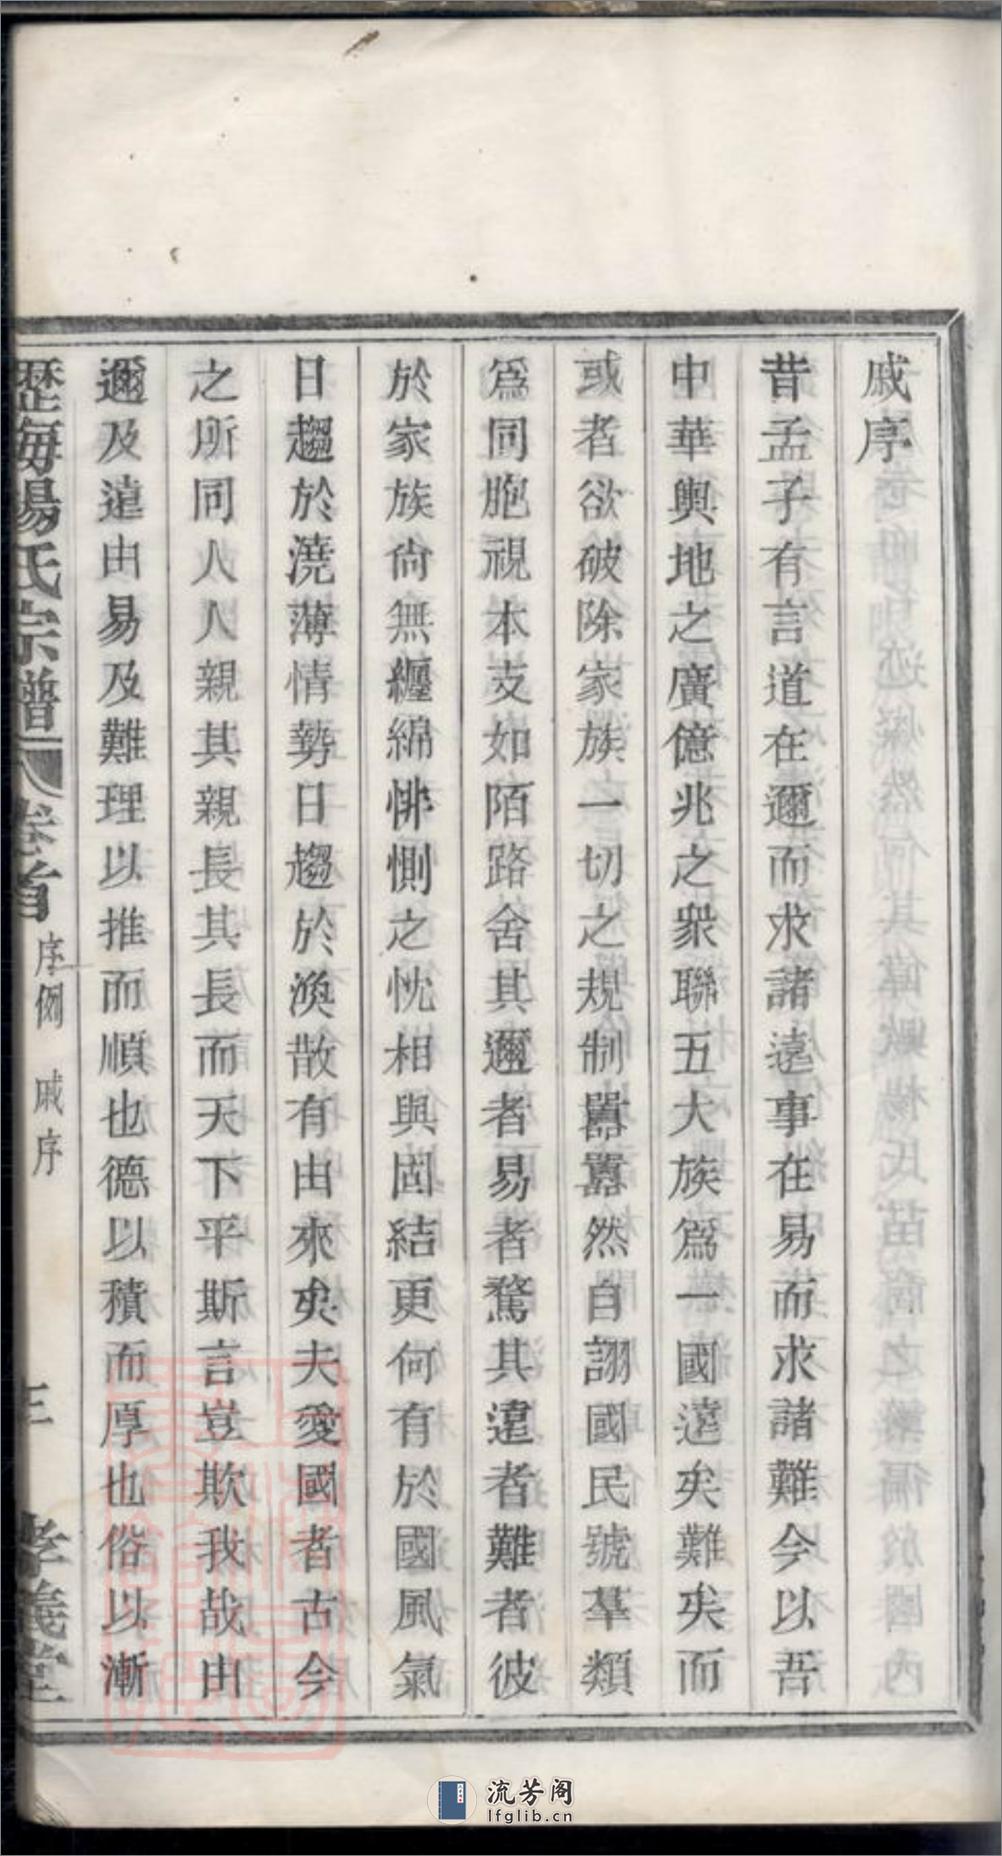 戚序
昔孟子有言道在邇而求諸遠事在易而求諸難今以吾
中華輿地之廣億兆之衆聯五大族爲一國遠矣難矣而
或者欲破除家族一切之規制囂囂然自詡國民號羣類
爲同胞視本支如陌路舍其邇者易者騖其遠者難者彼
於家族尙無纏綿悱惻之忱相與固結更何有於國風氣
日趨於澆薄情勢日趨於渙散有由來矣夫愛國者古今
之所同人人親其親長其長而天下平斯言豈欺我哉由
邇及遠由易及難理以推而順也德以積而厚也俗以漸
歷海楊氏宗譜 卷首 序例 戚序 三 孝義堂
流芳阁
lfglib.cn